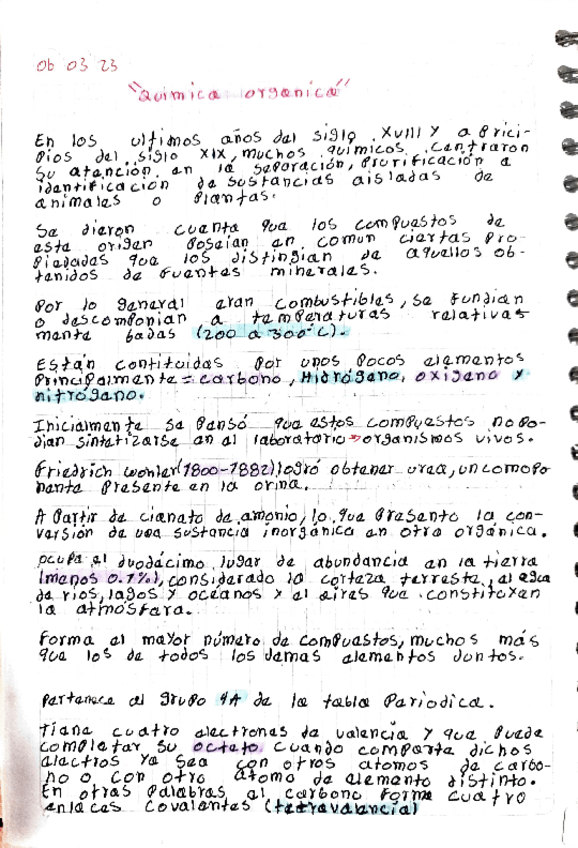 06 03 23
"Quimica organica"
En los ultimos años del siglo XVIII y a prici-
pios del siglo XIX, muchos quimicos centraron
su atención en la separación, prurificación a
identificación de sustancias aisladas de
animales o plantas.
Se dieron cuenta que los compuestos de
este origen poseian en comun ciertas pro-
piedades que los distingian de aquellos ob-
tenidos de fuentes minerales.
Por lo general eran combustibles, se fundian
o descomponian a temperaturas relativas
mente badas (200 a 300°C).
Están contituidas por unos pocos elementos
Principalmente = carbono, Hidrógeno, oxigeno y
nitrógeno.
Inicialmente se pensó que estos compuestos no po-
dian sintetizarse en el laboratorio → organismos vivos.
Friedrich wohler (1800-1882) logró obtener urea, un comopo
nente presente en la orina.
A partir de cianato de amonio, lo que presento la con-
versión de una sustancia inorgánica en otra orgánica.
ocupa el duodécimo lugar de abundancia en la tierra
(menos 0.1%), considerado la corteza terreste, el agua
de rios, lagos y océanos y el aires que constituyen
la atmósfera.
Forma el mayor número de compuestos, muchos más
que los de todos los demas elementos Juntos.
pertenece al grupo 4A de la tabla Periodica.
Tiene cuatro electrones de valencia y que puede
completar su octeto cuando comparte dichos
electros ya sea con otros atomos de carbo-
no o con otro atomo de elemento distinto.
En otras palabras el carbono forma cuatro
enlaces covalentes (tetravalencia)